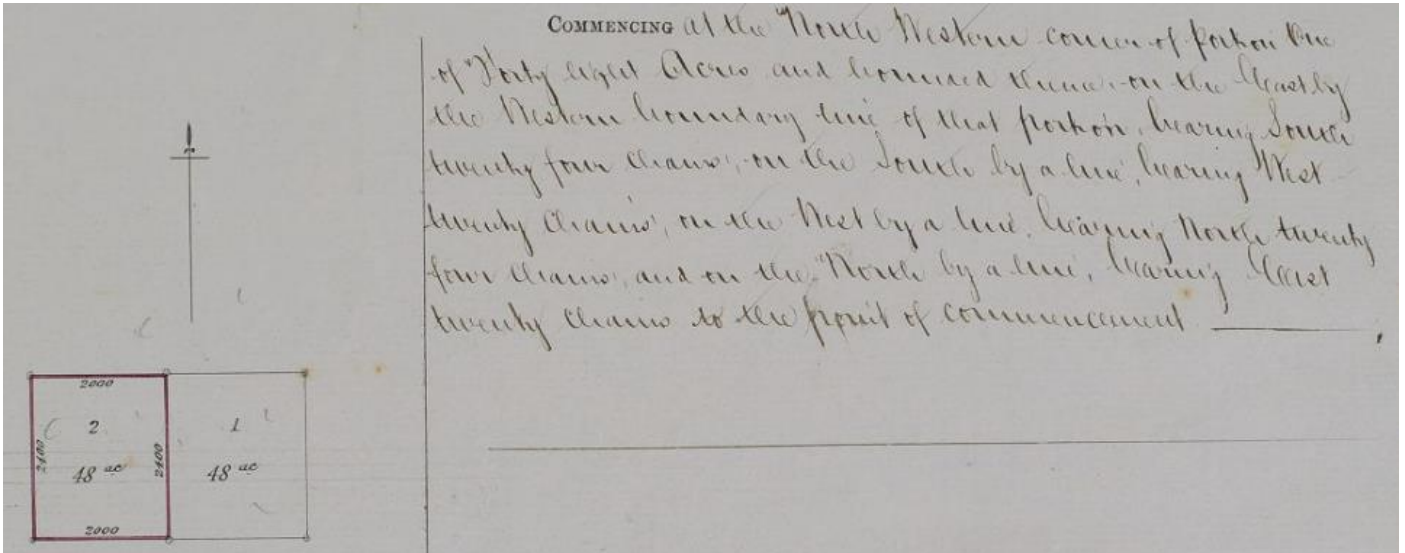 COMMENCING at the North Western corner of portion One
of Forty eight Acres and bounded thence on the East by
the Western boundary line of that portion, bearing South
twenty four chains, on the South by a line, bearing West
twenty chains, on the West by a line, bearing North twenty
four chains, and on the North by a line, bearing East
twenty chains to the point of commencement
2000
2 1
2400 2400
48 ac 48 ac
2000